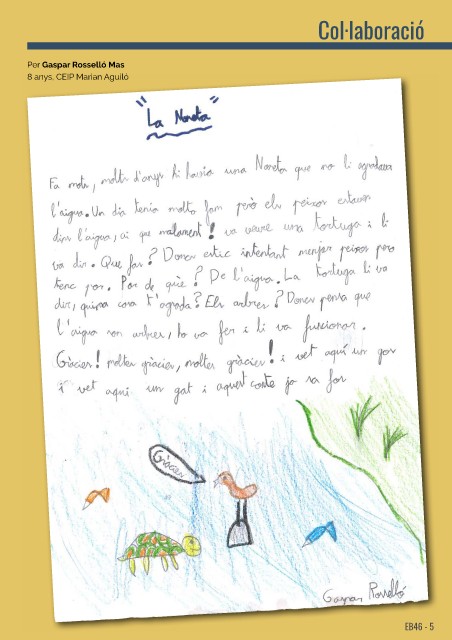 Col·laboració
Per Gaspar Rosselló Mas
8 anys. CEIP Marian Aguiló
"La Noreta"
Fa molts, molts d'anys hi havia una Noreta que no li agradava
l'aigua. Un dia tenia molta fam però els peixos estaven
dins l'aigua, ai que malament! va veure una tortuga i li
va dir. Que fas? Doncs estic intentant menjar peixos pero
tenc por. Por de què? De l'aigua. La tortuga li va
dir, quina cosa t'agrada? Els arbres? Doncs pensa que
l'aigua son arbres, ho va fer i li va funcionar.
Gràcies! moltes gràcies, moltes gràcies! i vet aquí un gos
i vet aquí un gat i aquest conte ja sa fos
Gràcies
Gaspar Rosselló
EB46 - 5